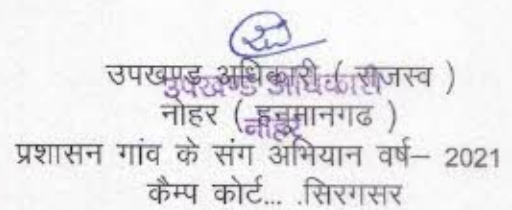 उपखण्ड अधिकारी ( राजस्व )
उपखण्ड अधिकारी
नोहर ( हनुमानगढ )
नोहर
प्रशासन गांव के संग अभियान वर्ष– 2021
कैम्प कोर्ट... .सिरगसर